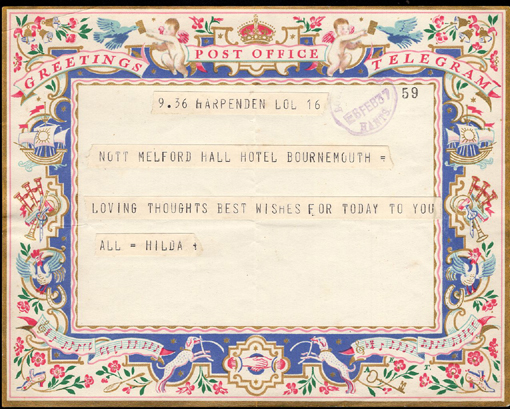 GREETINGS POST OFFICE TELEGRAM
9.36 HARPENDEN LOL 16
59
28 FEB 37
HANTS
NOTT MELFORD HALL HOTEL BOURNEMOUTH =
LOVING THOUGHTS BEST WISHES FOR TODAY TO YOU
ALL = HILDA +